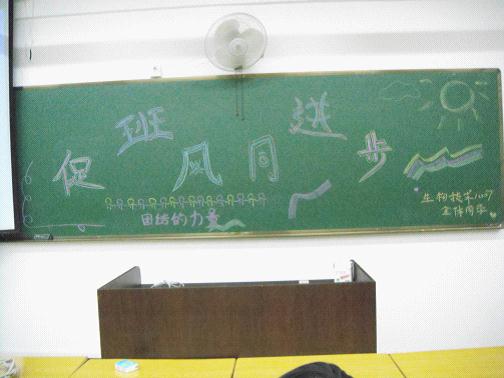 促班风同进步
团结的力量
生物技术1007
全体同学